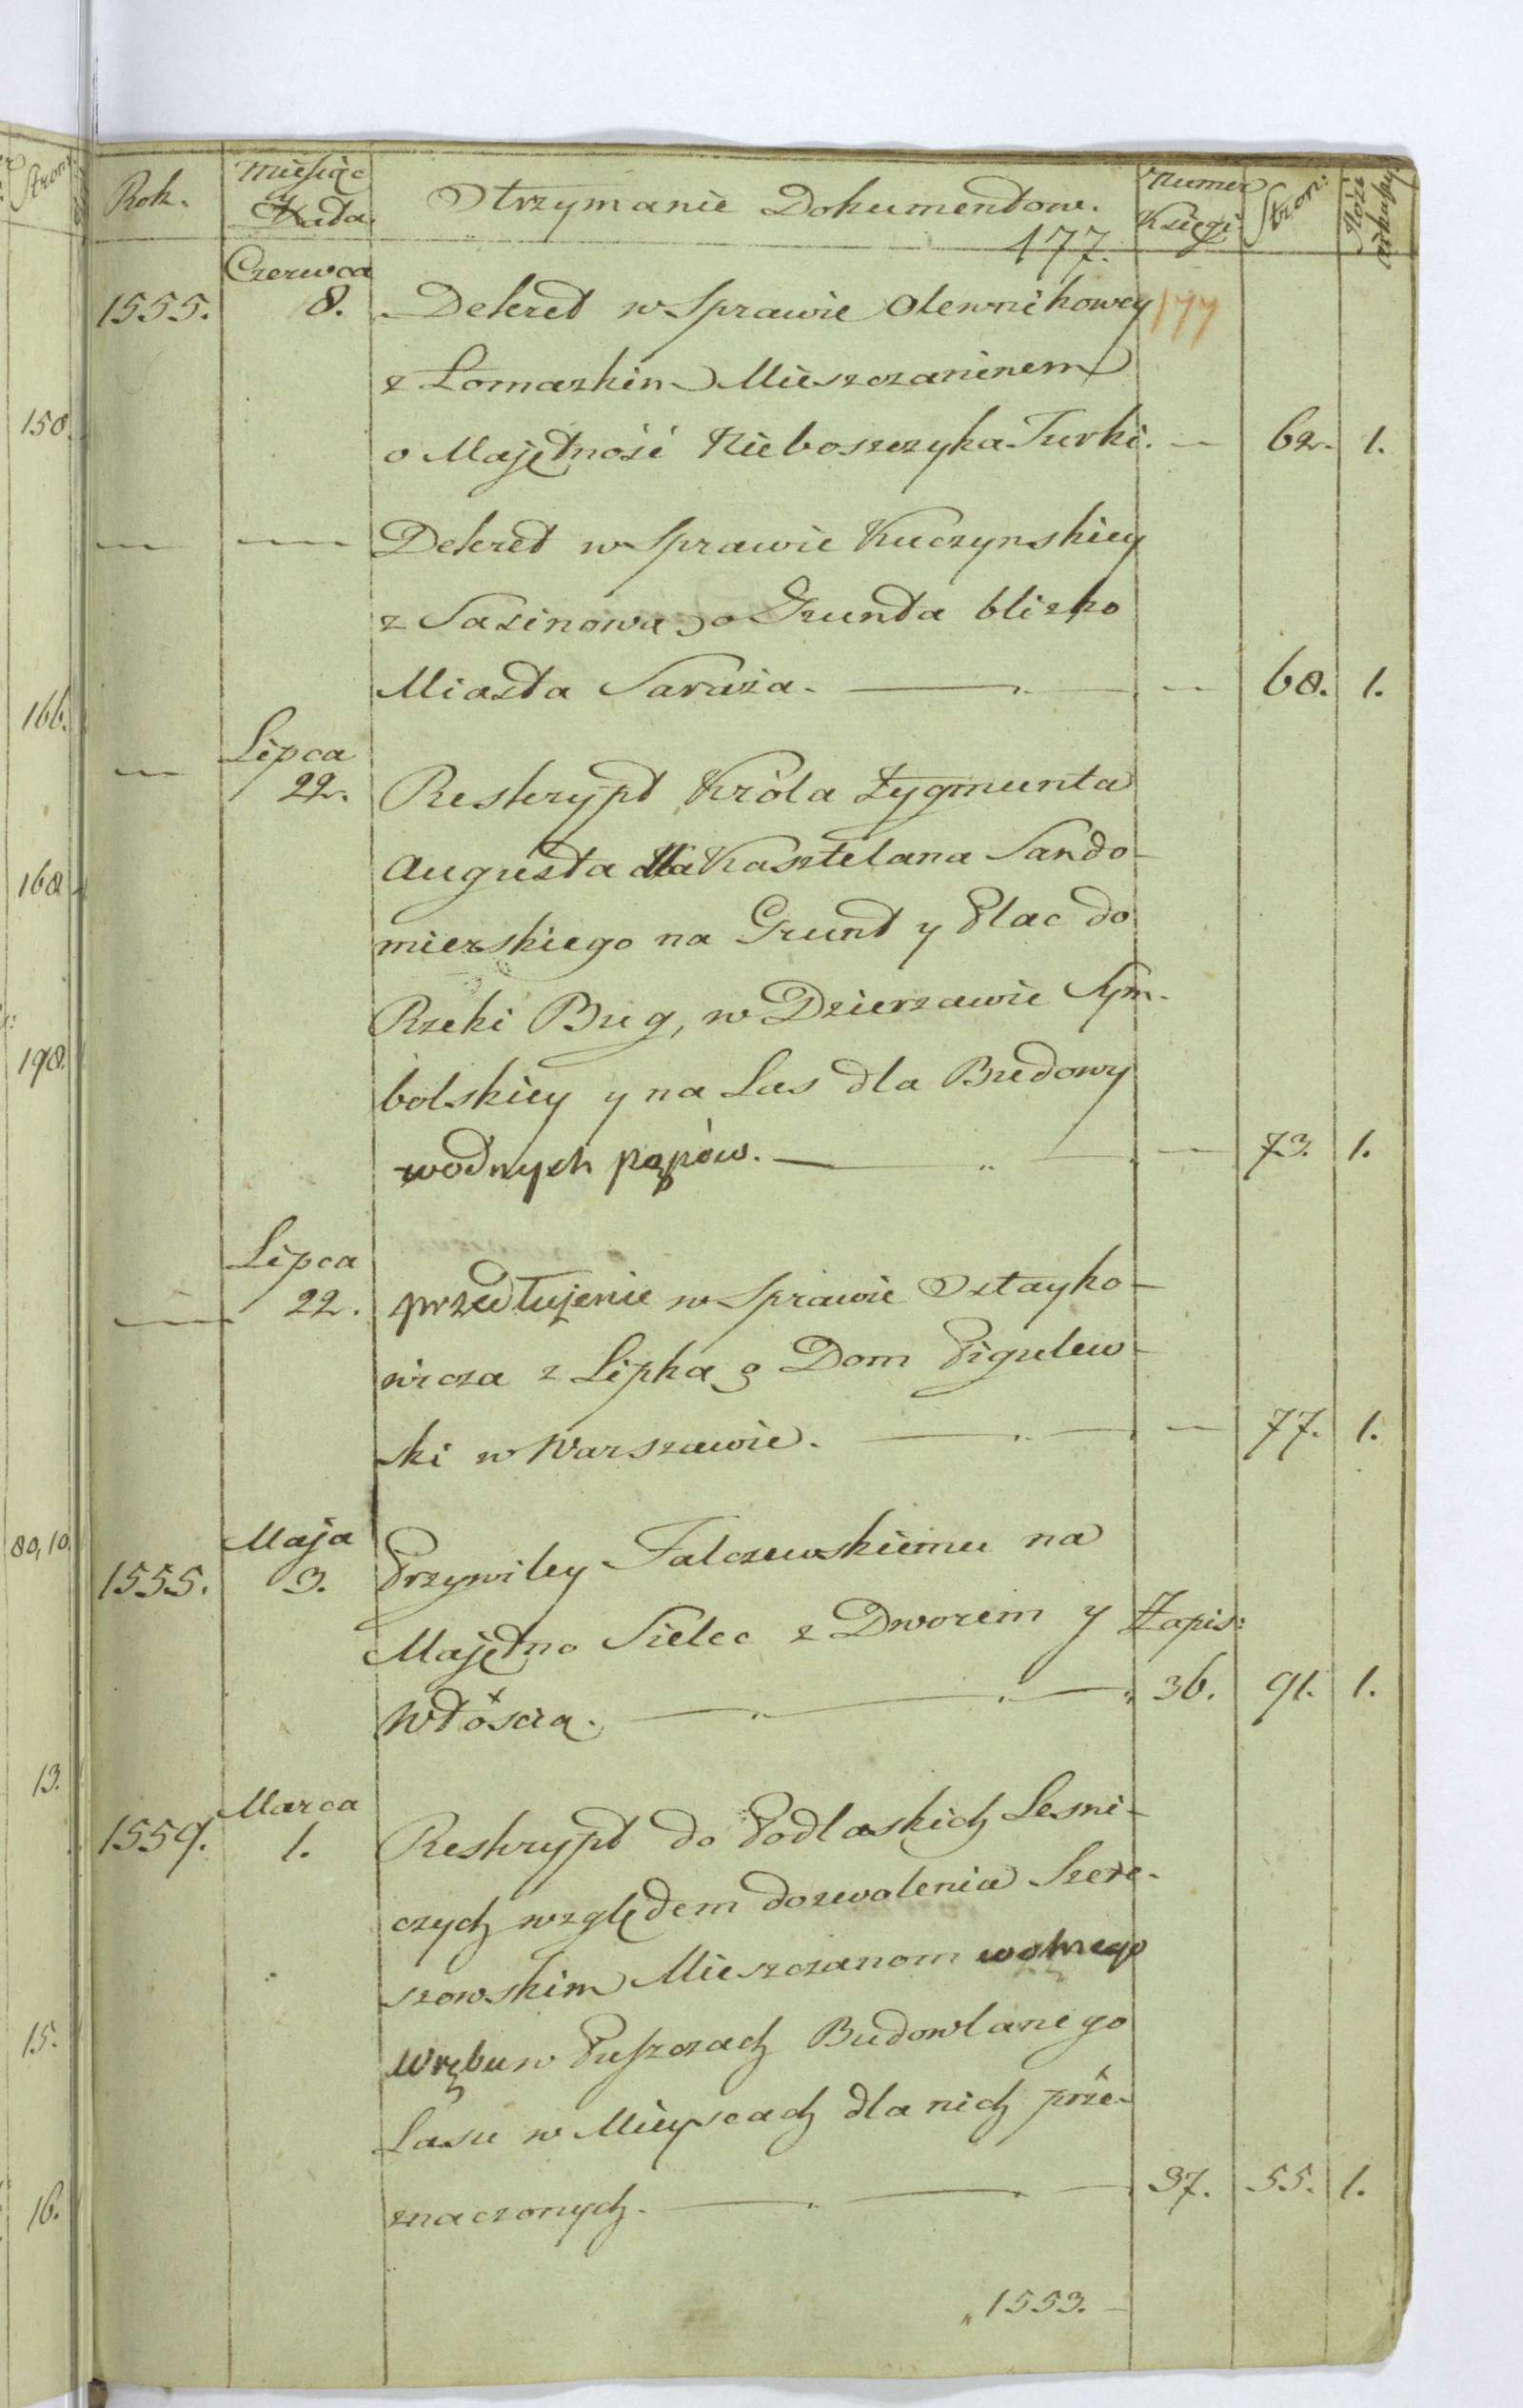 Rok. Miesiąc Data. Otrzymanie Dokumentow. Numer Księgi Stron:
177.
177
Czerwca
1555. 8. Dekret w Sprawie Olewnikowey
z Łomazkim Mieszczaninem
o Majętność Nieboszczyka Turki. — 62. 1.
— — Dekret w Sprawie Kuczynskiey
z Sasinową o Grunta blizko
Miasta Saraża. — — 68. 1.
Lipca
— 22. Reskrypt Króla Zygmunta
Augusta dla Kasztelana Sando-
mierskiego na Grunt y Plac do
Rzeki Bug, w Dzierzawie Sym-
bolskiey y na Las dla Budowy
wodnych pąpów. — — 73. 1.
Lipca
— 22. przedłujenie w Sprawie Ostayko-
wicza z Lipką o Dom Pigulew-
ski w Warszawie. — — 77. 1.
Maja
1555. 3. Przywiley Falczewskiemu na
Majętno Sielec z Dworem y Zapis:
Włością. — 36. 91. 1.
Marca
1559. 1. Reskrypt do Podlaskich Lesni-
czych względem dozwolenia Szere-
szowskim Mieszczanom wolnego
Wrębu w Puszczach Budowlanego
Lasu w Mieyscach dla nich prze-
znaczonych. — 37. 55. 1.
1553. —
150.
166.
168
198.
80, 10.
13.
15.
16.